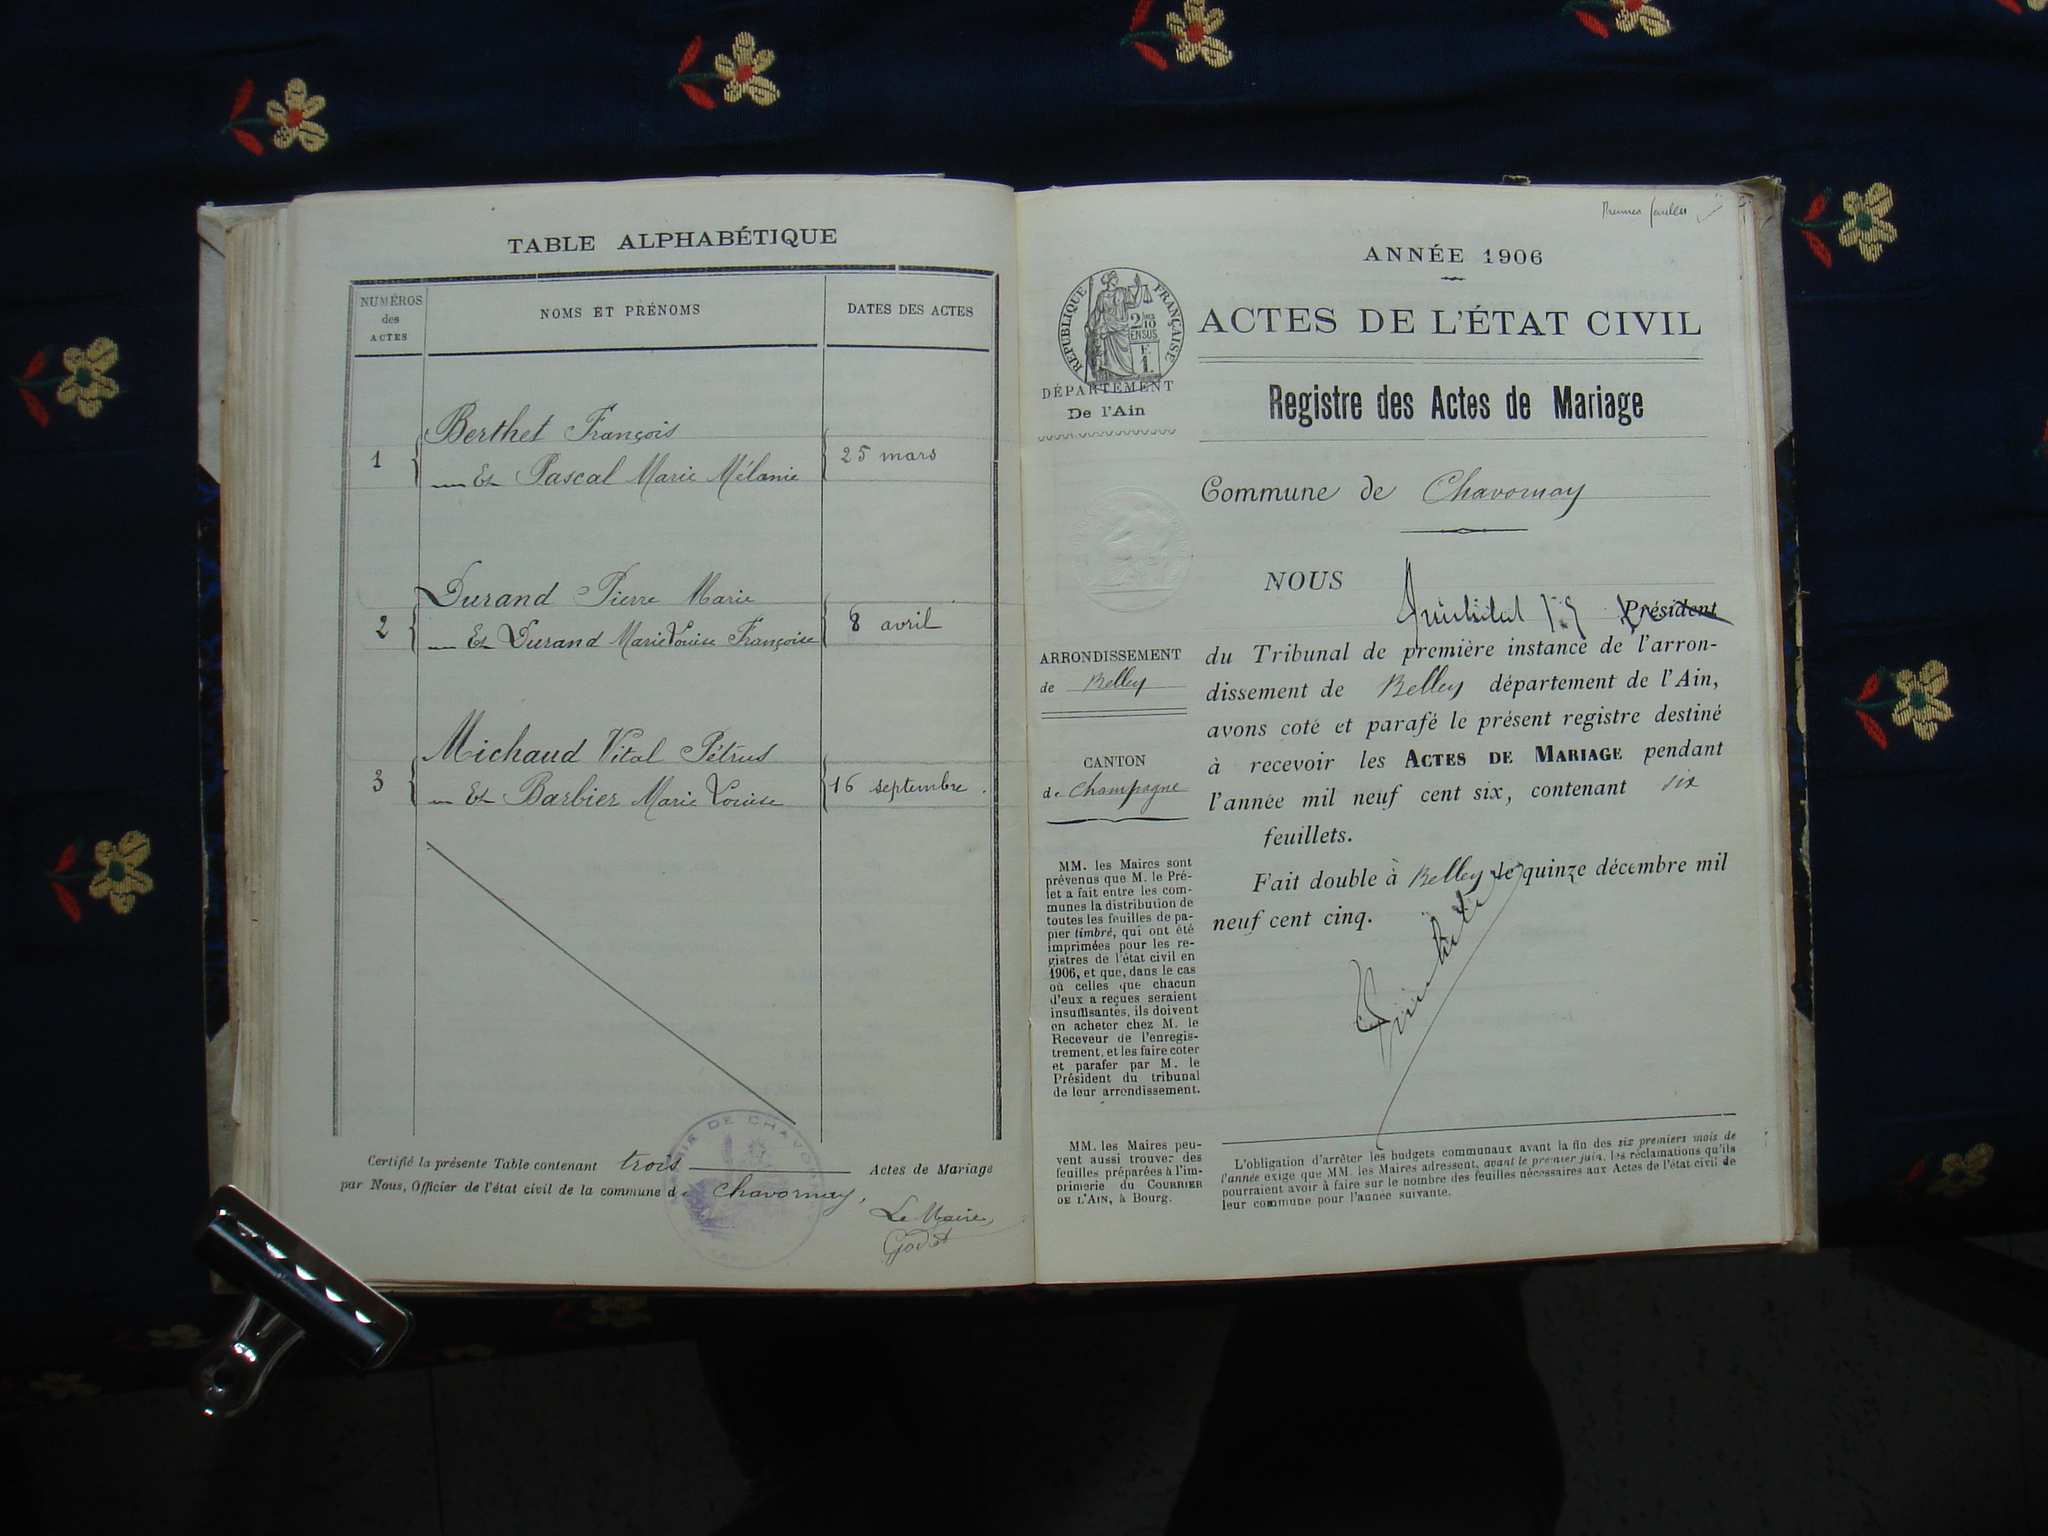 TABLE ALPHABÉTIQUE
NUMÉROS
des
ACTES
NOMS ET PRÉNOMS
DATES DES ACTES
1
Berthet François
Et Pascal Marie Mélanie
25 mars
2
Durand Pierre Marie
Et Durand Marie Louise Françoise
8 avril
3
Michaud Vital Pétrus
Et Barbier Marie Louise
16 septembre.
Certifié la présente Table contenant trois Actes de Mariage
par Nous, Officier de l'état civil de la commune de Chavornay,
Le Maire,
ANNÉE 1906
RÉPUBLIQUE FRANÇAISE
2/10
EN SUS
F
1.
ACTES DE L'ÉTAT CIVIL
DÉPARTEMENT
De l'Ain
Registre des Actes de Mariage
Commune de Chavornay
NOUS
Président
du Tribunal de première instance de l'arron-
dissement de Belley département de l'Ain,
avons coté et parafé le présent registre destiné
à recevoir les ACTES DE MARIAGE pendant
l'année mil neuf cent six, contenant six
feuillets.
Fait double à Belley le quinze décembre mil
neuf cent cinq.
ARRONDISSEMENT
de Belley
CANTON
de Champagne
MM. les Maires sont
prévenus que M. le Pré-
fet a fait entre les com-
munes la distribution de
toutes les feuilles de pa-
pier timbré, qui ont été
imprimées pour les re-
gistres de l'état civil en
1906, et que, dans le cas
où celles que chacun
d'eux a reçues seraient
insuffisantes, ils doivent
en acheter chez M. le
Receveur de l'enregis-
trement, et les faire coter
et parafer par M. le
Président du tribunal
de leur arrondissement.
MM. les Maires peu-
vent aussi trouver des
feuilles préparées à l'im-
primerie du COURRIER
DE L'AIN, à Bourg.
L'obligation d'arrêter les budgets communaux avant la fin des six premiers mois de
l'année exige que MM. les Maires adressent, avant le premier juin, les réclamations qu'ils
pourraient avoir à faire sur le nombre des feuilles nécessaires aux Actes de l'état civil de
leur commune pour l'année suivante.